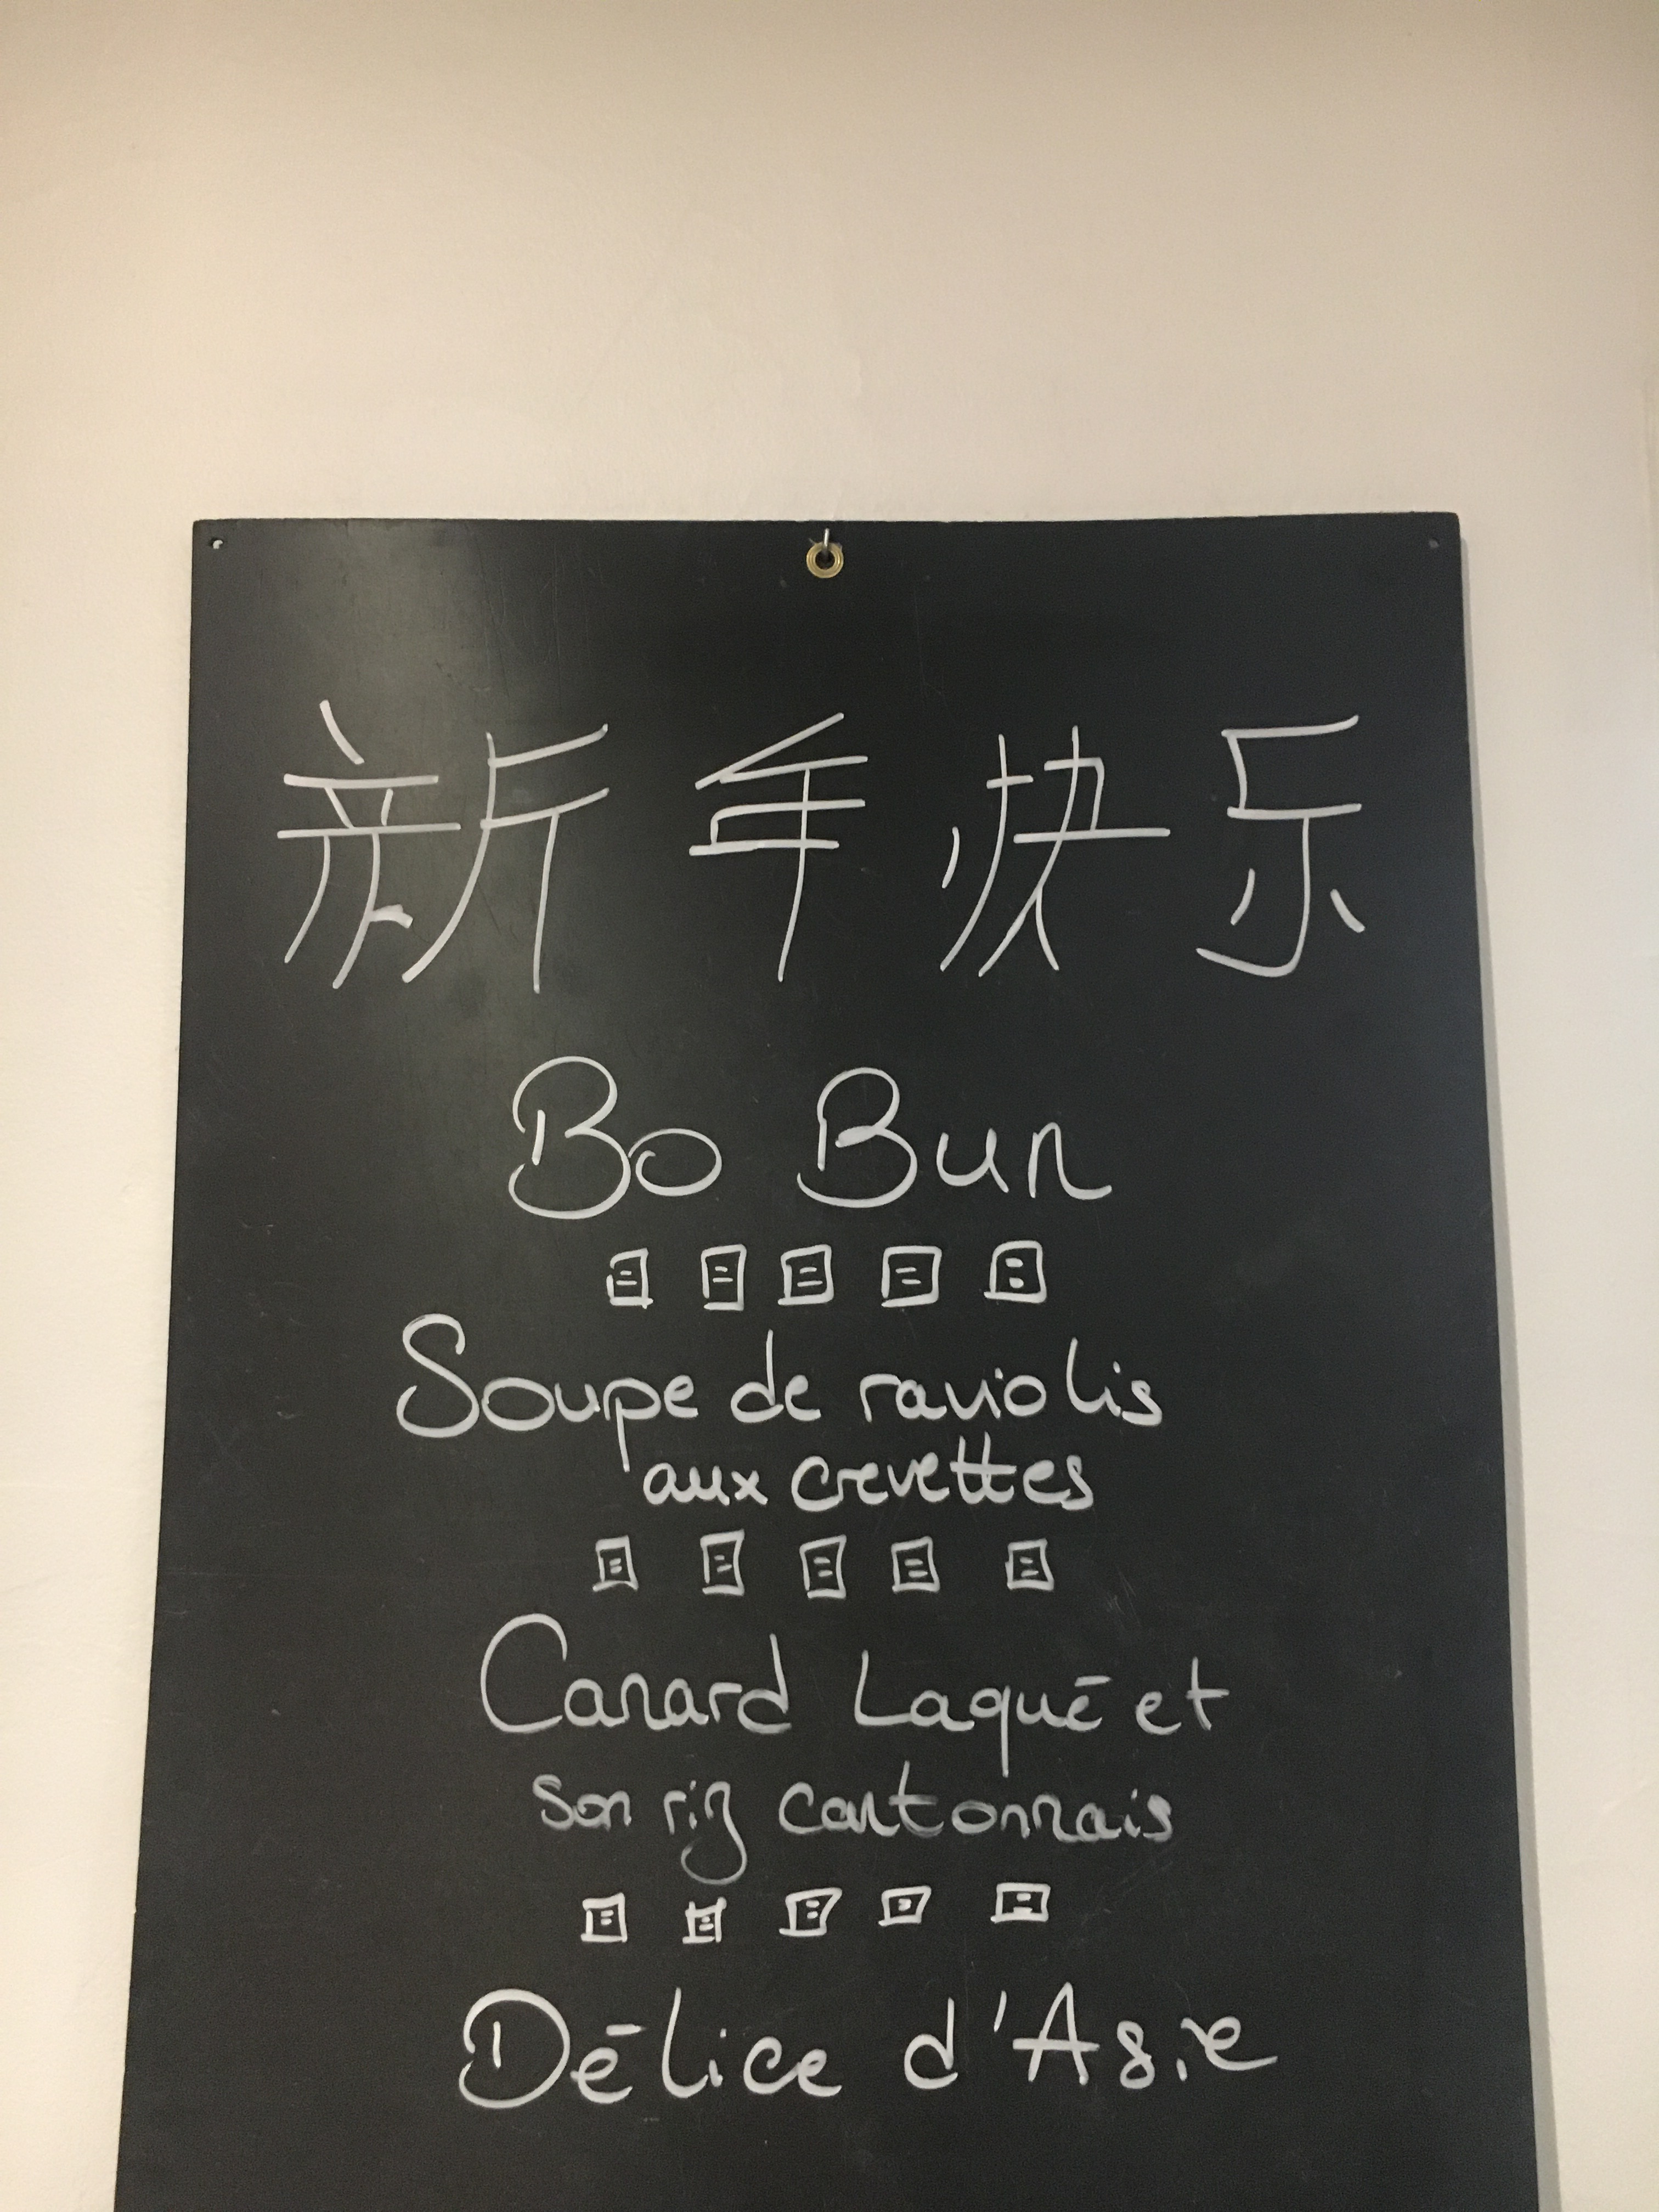 新年快乐
Bo Bun
Soupe de raviolis
aux crevettes
Canard Laqué et
son riz cantonnais
Délice d'Asie